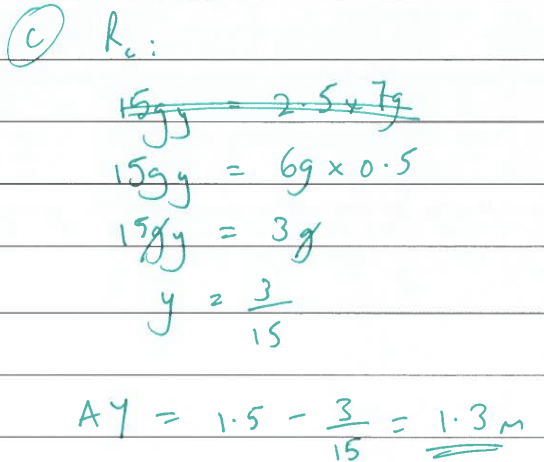 (c) R_c:
15gy = 2.5 x 7g
15gy = 6g x 0.5
15gy = 3g
y = 3/15
AY = 1.5 - 3/15 = 1.3m